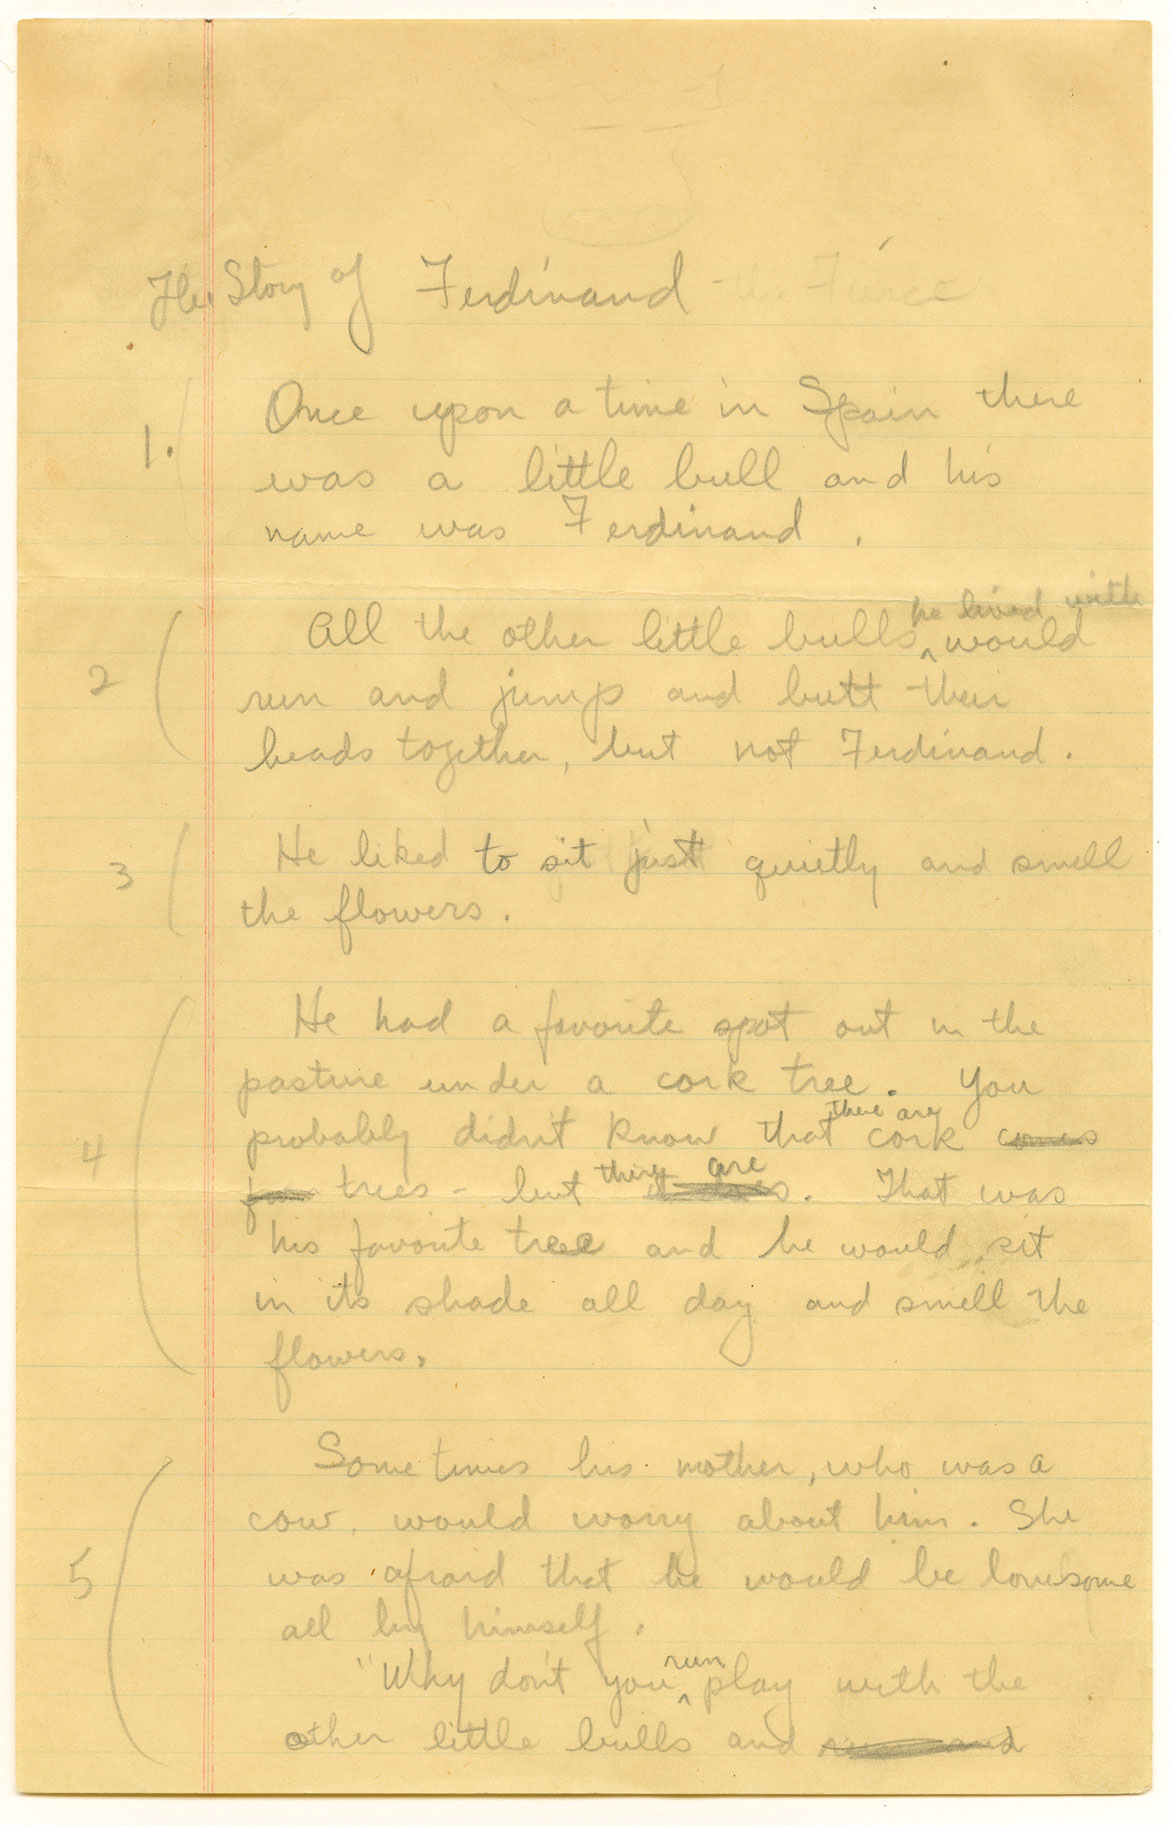 The Story of Ferdinand - the Fierce
1. Once upon a time in Spain there
was a little bull and his
name was Ferdinand.
he lived with
2 All the other little bulls ^ would
run and jump and butt their
heads together, but not Ferdinand.
3 He liked to sit just quietly and smell
the flowers.
He had a favorite spot out in the
pasture under a cork tree. You
there are
4 probably didn't know that cork comes
they are
trees - but it does. That was
his favorite tree and he would sit
in its shade all day and smell the
flowers.
Sometimes his mother, who was a
cow, would worry about him. She
5 was afraid that he would be lonesome
all by himself.
run
"Why don't you ^ play with the
other little bulls and run and